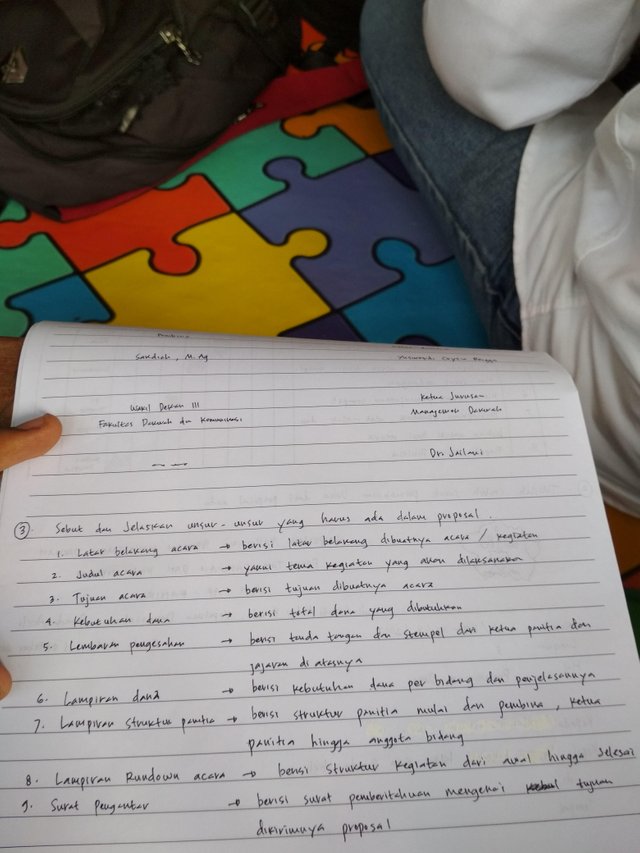 Sardiah, M. Ag
Wakil Dekan III
Ketua Jurusan
Fakultas Dakwah dan Komunikasi
Manajemen Dakwah
Drs Jailani
3. Sebut dan Jelaskan unsur-unsur yang harus ada dalam proposal.
1. Latar belakang acara → berisi latar belakang dibuatnya acara / kegiatan
2. Judul acara → yakni tema kegiatan yang akan dilaksanakan
3. Tujuan acara → berisi tujuan dibuatnya acara
4. Kebutuhan dana → berisi total dana yang dibutuhkan
5. Lembaran pengesahan → berisi tanda tangan dan stempel dari ketua panitia dan
jajaran di atasnya
6. Lampiran dana → berisi kebutuhan dana per bidang dan penjelasannya
7. Lampiran struktur panitia → berisi struktur panitia mulai dari pembina, ketua
panitia hingga anggota bidang
8. Lampiran Rundown acara → berisi struktur kegiatan dari awal hingga selesai
9. Surat Pengantar → berisi surat pemberitahuan mengenai tujuan
dikirimnya proposal